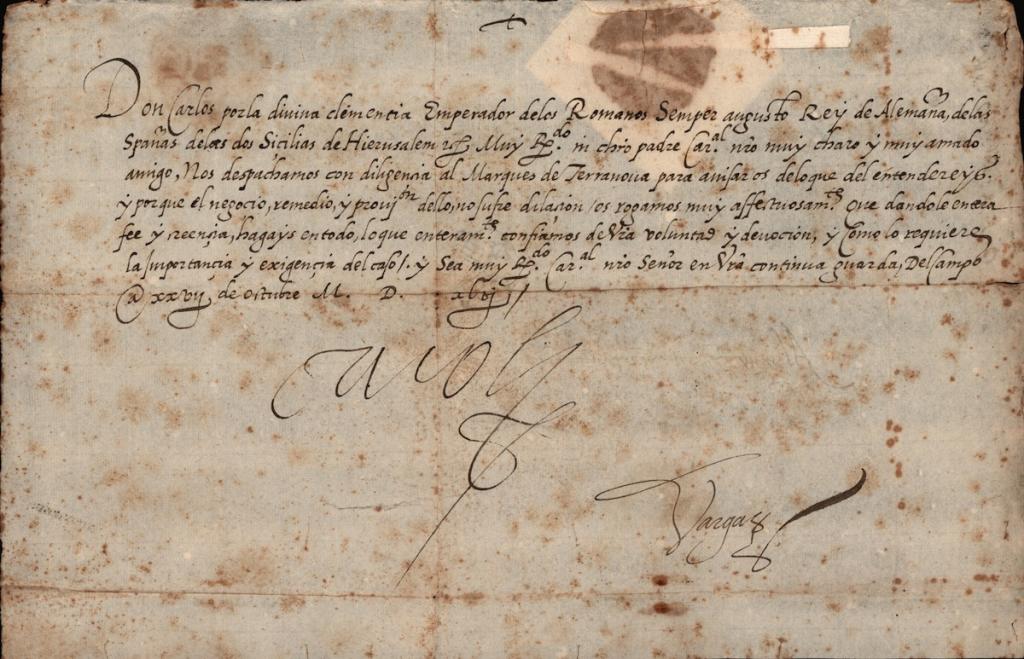 Don Carlos por la divina clemencia Emperador delos Romanos Semper augusto Rey de Alemaña, delas
Spañas delas dos Sicilias de Hierusalem &c. Muy R.do in chr̃o padre Car.al nr̃o muy charo y muy amado
amigo, Nos despachamos con diligencia al Marques de Terranoua para auisaros deloque del entendereys.
y porque el negocio, remedio, y prouij.on dello, no sufre dilacion / os rogamos muy affectuosam.te que dandole entera
fee y creencia, hagays en todo, lo que enteram.te confiamos de Vr̃a voluntad y deuocion, y Como lo requiere
la importancia y exigencia del caso /. y Sea muy R.do Car.al nr̃o Señor en Vr̃a continua guarda, Del Campo
a xxvij de Octubre M. D. xlvj /
Carolus
Vargas